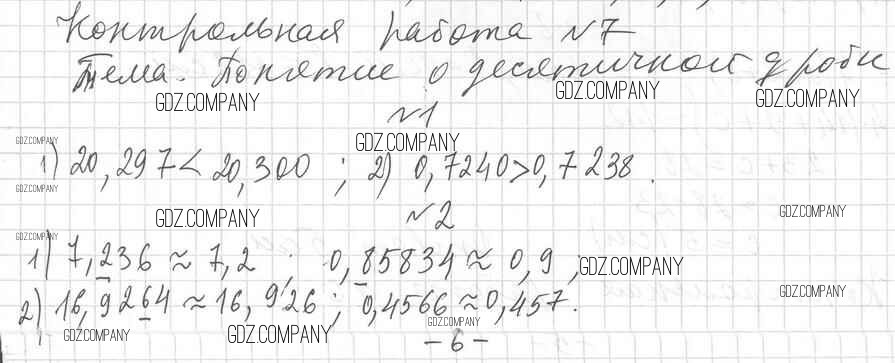 Контрольная работа №7
Тема. Понятие о десятичной дроби
GDZ.COMPANY GDZ.COMPANY GDZ.COMPANY
№1
GDZ.COMPANY GDZ.COMPANY
1) 20,297 < 20,300 ; 2) 0,7240 > 0,7238.
GDZ.COMPANY
GDZ.COMPANY №2 GDZ.COMPANY
GDZ.COMPANY
1) 7,236 ≈ 7,2 ; 0,85834 ≈ 0,9 ; GDZ.COMPANY
2) 16,9264 ≈ 16,926 ; 0,4566 ≈ 0,457. GDZ.COMPANY
GDZ.COMPANY GDZ.COMPANY GDZ.COMPANY
- 6 -